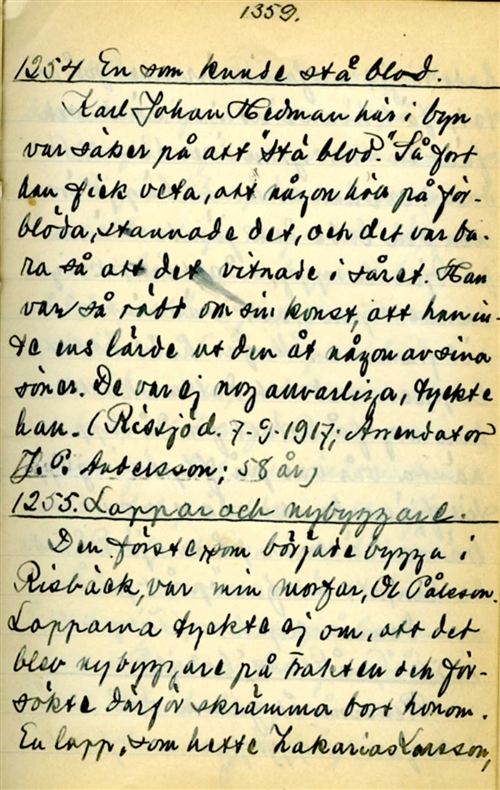 1359.
1254 En som kunde stå blod.
Karl Johan Hedman här i byn
var säker på att "stå blod." Så fort
han fick veta, att någon höll på för-
blöda, stannade det, och det var ba-
ra så att det vitnade i såret. Han
var så rädd om sin konst, att han in-
te ens lärde ut den åt någon av sina
söner. De var ej nog anvarliga, tyckte
han. (Rissjö d. 7-9-1917; Arrendator
J. P. Andersson; 58 år)
1255. Lappar och nybyggare.
Den förste, som började bygga i
Risbäck, var min morfar, Ol Pålsson.
Lapparna tyckte ej om, att det
blev nybyggare på trakten och för-
sökte därför skrämma bort honom.
En lapp, som hette Zakarias Larsson,